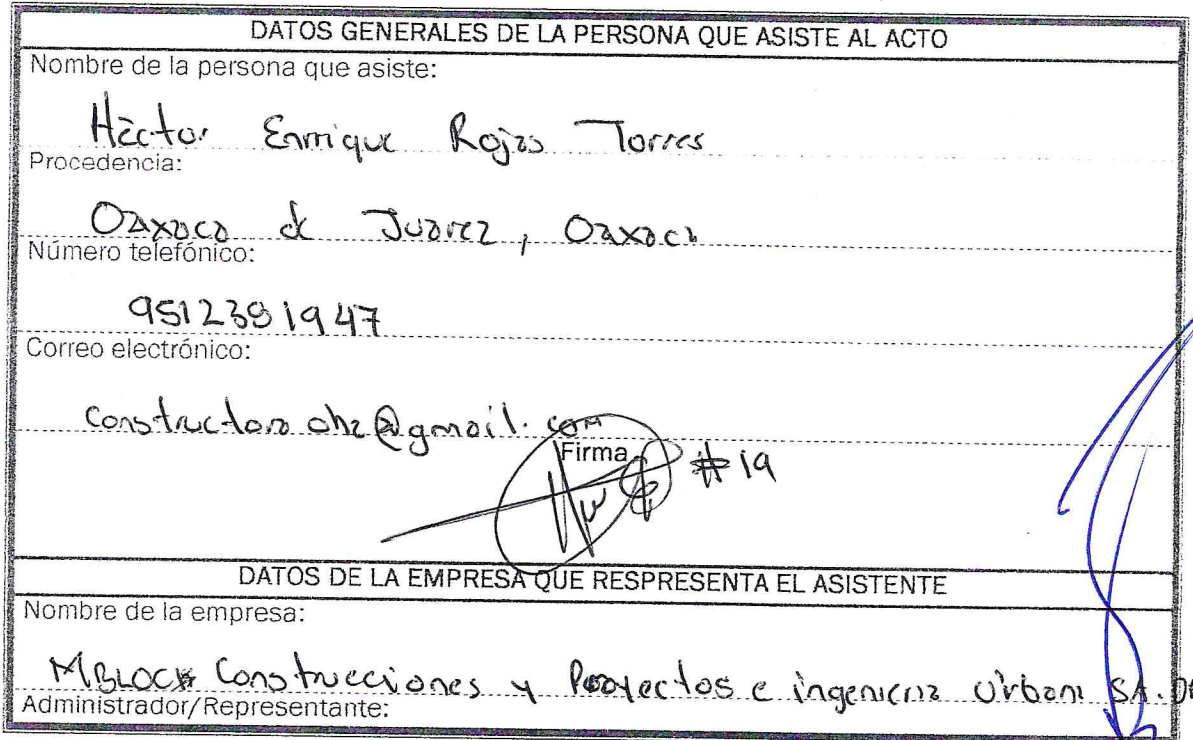 DATOS GENERALES DE LA PERSONA QUE ASISTE AL ACTO
Nombre de la persona que asiste:
Héctor Enrrique Rojas Torres
Procedencia:
Oaxaca de Juarez, Oaxaca
Número telefónico:
9512381947
Correo electrónico:
constructora oh2@gmail.com
Firma
#19
DATOS DE LA EMPRESA QUE RESPRESENTA EL ASISTENTE
Nombre de la empresa:
MBLOCK Construcciones y Proyectos e ingenieria Urbana SA. DE
Administrador/Representante: